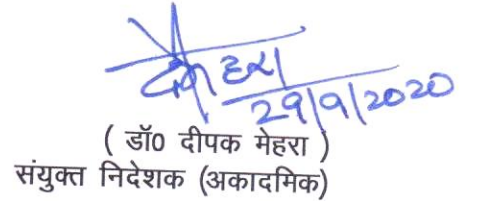 29/9/2020
( डॉ0 दीपक मेहरा )
संयुक्त निदेशक (अकादमिक)